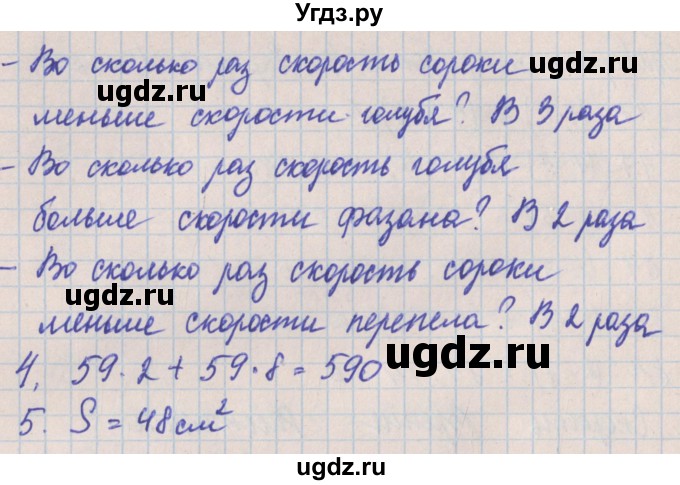 Угдз.ру
- Во сколько раз скорость сороки
меньше скорости голубя? В 3 раза
- Во сколько раз скорость голубя
больше скорости фазана? В 2 раза
- Во сколько раз скорость сороки
меньше скорости перепела? В 2 раза
4, 59·2+59·8=590
5. S=48см²
ugdz.ru
ugdz.ru
ugdz.ru
ugdz.ru
ugdz.ru
ugdz.ru
ugdz.ru